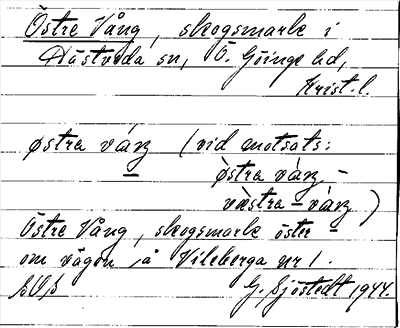 Östre Vång, skogsmark i
Hästveda sn, Ö. Göinge hd,
Krist. l.
østra váŋ (vid motsats:
østra váŋ –
vàstra – váŋ)
Östre Vång, skogsmark öster
om vägen å Vileberga nr 1.
G. Sjöstedt 1944.